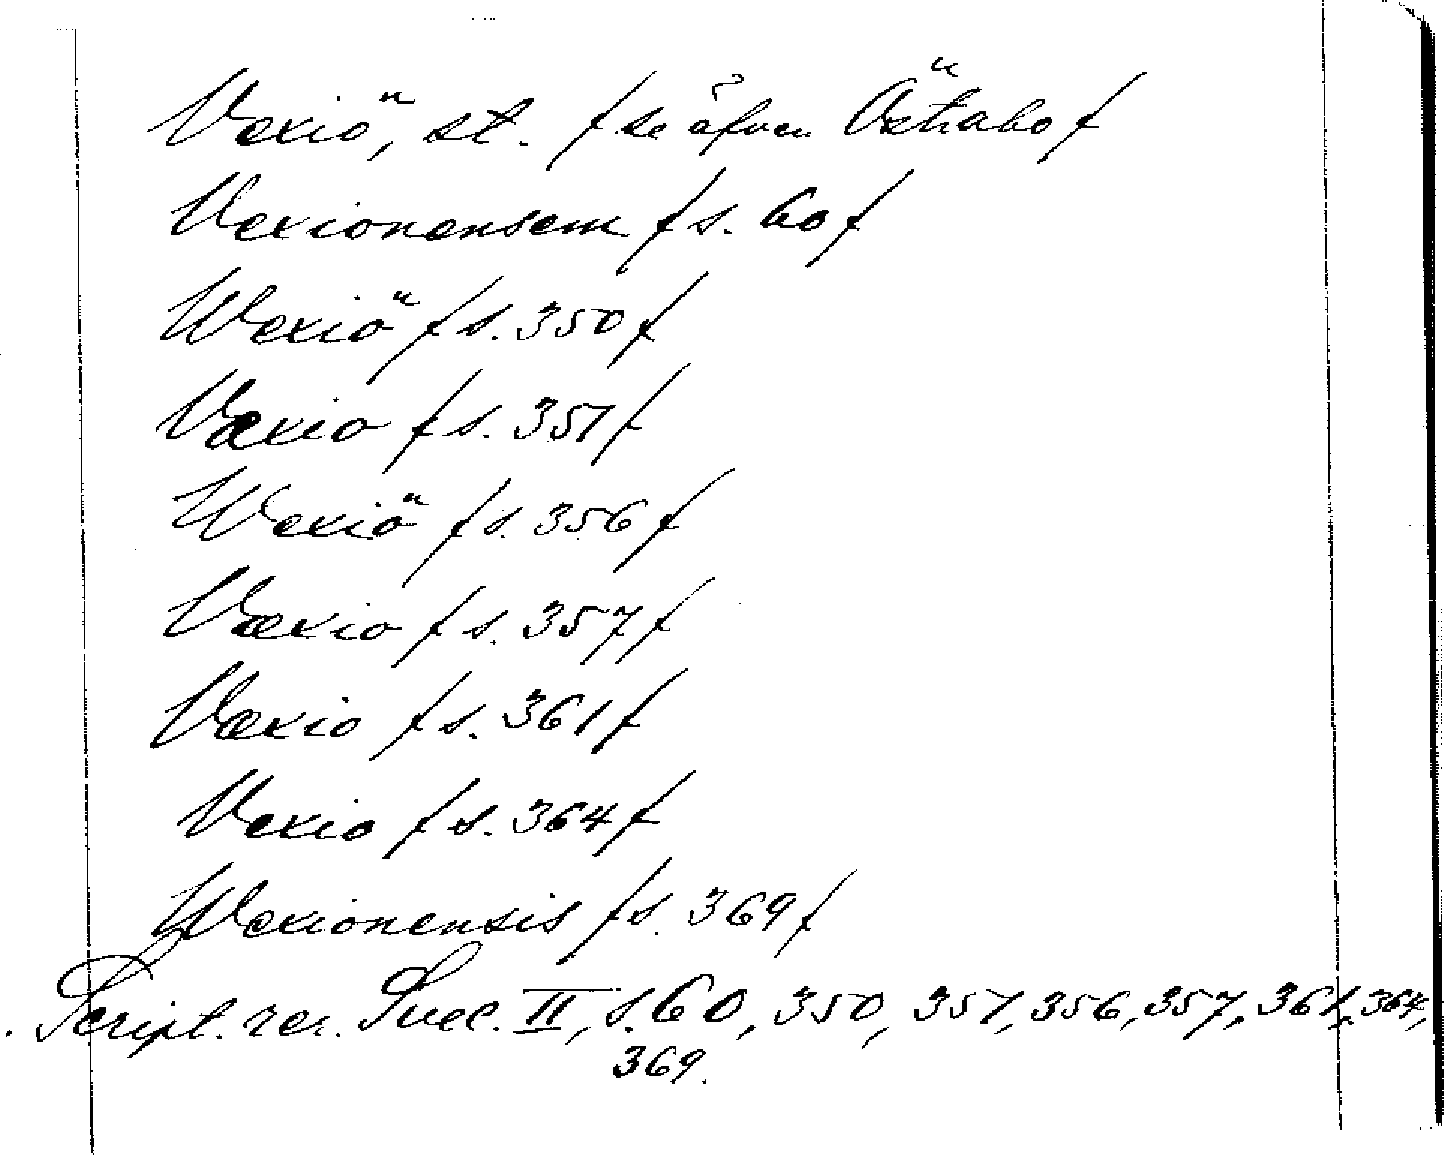 Vexiö, st. / se äfven Östrabo /
Vexionensem / s. 60 /
Wexiö / s. 350 /
Væxio / s. 351 /
Wexiö / s. 356 /
Væxio / s. 357 /
Væxio / s. 361 /
Vexio / s. 364 /
Wexionensis / s. 369 /
Script. rer. Svec. II, s. 60, 350, 351, 356, 357, 361, 364,
369.